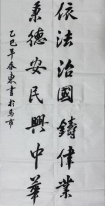 依法治國鑄偉業
秉德安民興中華
乙巳年春東書於易市